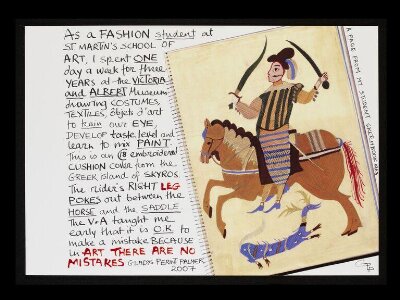 As a FASHION student at
ST MARTIN'S SCHOOL OF
ART, I spent ONE
day a week for three
YEARS at the VICTORIA
and ALBERT Museum
drawing COSTUMES,
TEXTILES, objets d'art
to train our EYE,
DEVELOP taste level and
learn to mix PAINT.
This is an 18 embroidered
CUSHION cover from the
GREEK island of SKYROS.
The rider's RIGHT LEG
POKES out between the
HORSE and the SADDLE
The V&A taught me
early that it is O.K to
make a mistake BECAUSE
in ART THERE ARE NO
MISTAKES GLADYS PERINT PALMER
2007
A PAGE FROM MY STUDENT SKETCHBOOK